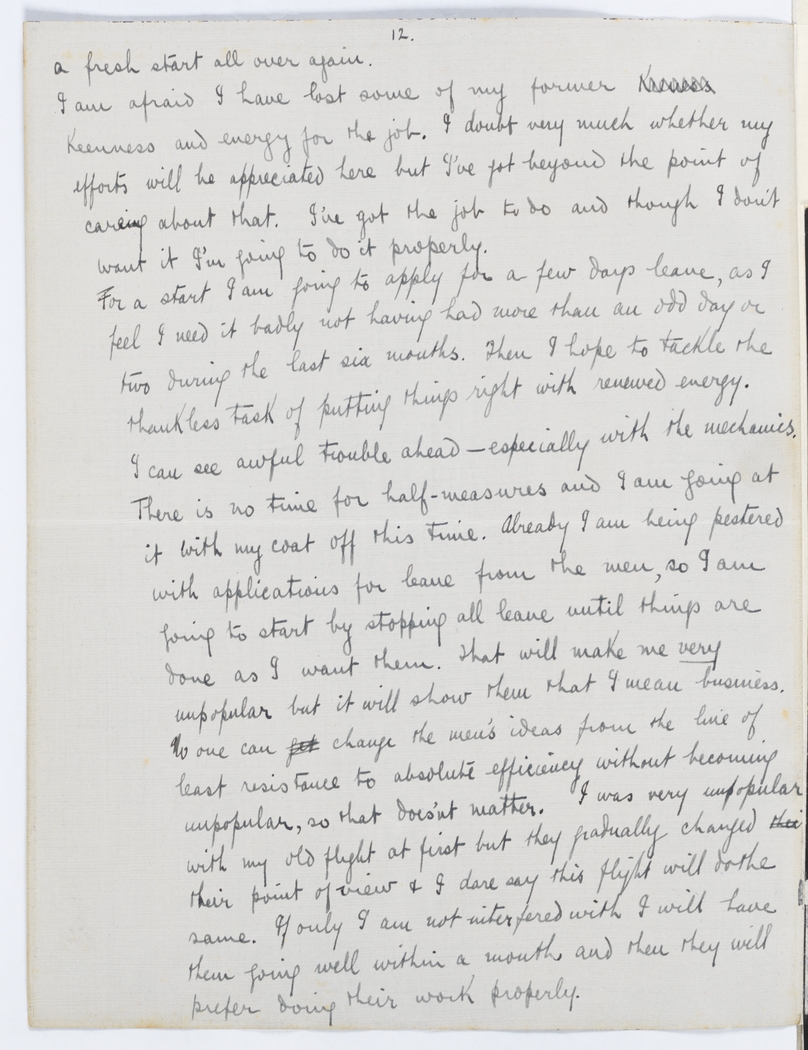 12.
a fresh start all over again.
I am afraid I have lost some of my former
Keenness and energy for the job. I doubt very much whether my
efforts will be appreciated here but I've got beyond the point of
caring about that. I've got the job to do and though I don't
want it I'm going to do it properly.
For a start I am going to apply for a few days leave, as I
feel I need it badly not having had more than an odd day or
two during the last six months. Then I hope to tackle the
thankless task of putting things right with renewed energy.
I can see awful trouble ahead – especially with the mechanics.
There is no time for half-measures and I am going at
it with my coat off this time. Already I am being pestered
with applications for leave from the men, so I am
going to start by stopping all leave until things are
done as I want them. That will make me very
unpopular but it will show them that I mean business.
No one can get change the men's ideas from the line of
least resistance to absolute efficiency without becoming
unpopular, so that does'nt matter. I was very unpopular
with my old flight at first but they gradually changed
their point of view & I dare say this flight will do the
same. If only I am not interfered with I will have
them going well within a month, and then they will
prefer doing their work properly.